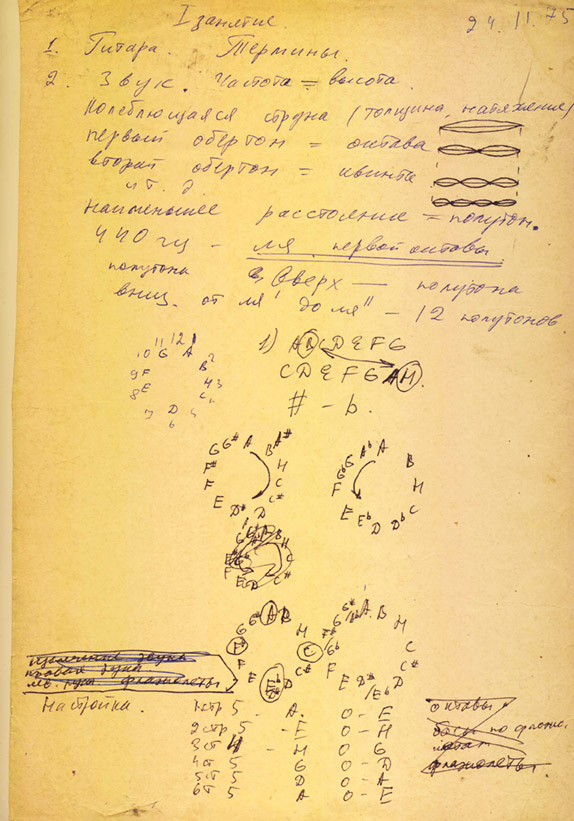 I занятие.
24.11.75
1. Гитара. Термины.
2. Звук. Частота = высота.
Колеблющаяся струна (толщина, натяжение)
первый обертон = октава
второй обертон = квинта
и т. д.
наименьшее расстояние = полутон.
440 гц - ля первой октавы
полутона вверх — полутона
вниз. от ля' до ля" - 12 полутонов
1) A B C D E F G
C D E F G A H.
# - b.
12 1
11 G A 2
10
9 F B
8 E 4 3
C
7 D 5
6
G# A A#
G B
F# H
F C
E C#
D# D
Ab A
G B
Gb
F H
E C
Eb D Db
G# A B
G H
F# C
F C#
E D# D
G# A B
G H
F C
E C#
D# D
Eb
Настройка. 1 стр 5 - A. 0 - E
2 стр 5 - E 0 - H
3 ст 4 - H 0 G
4 ст 5 G 0 - D
5 ст 5 D 0 - A
6 ст 5 A 0 - E
октавы
флажолеты